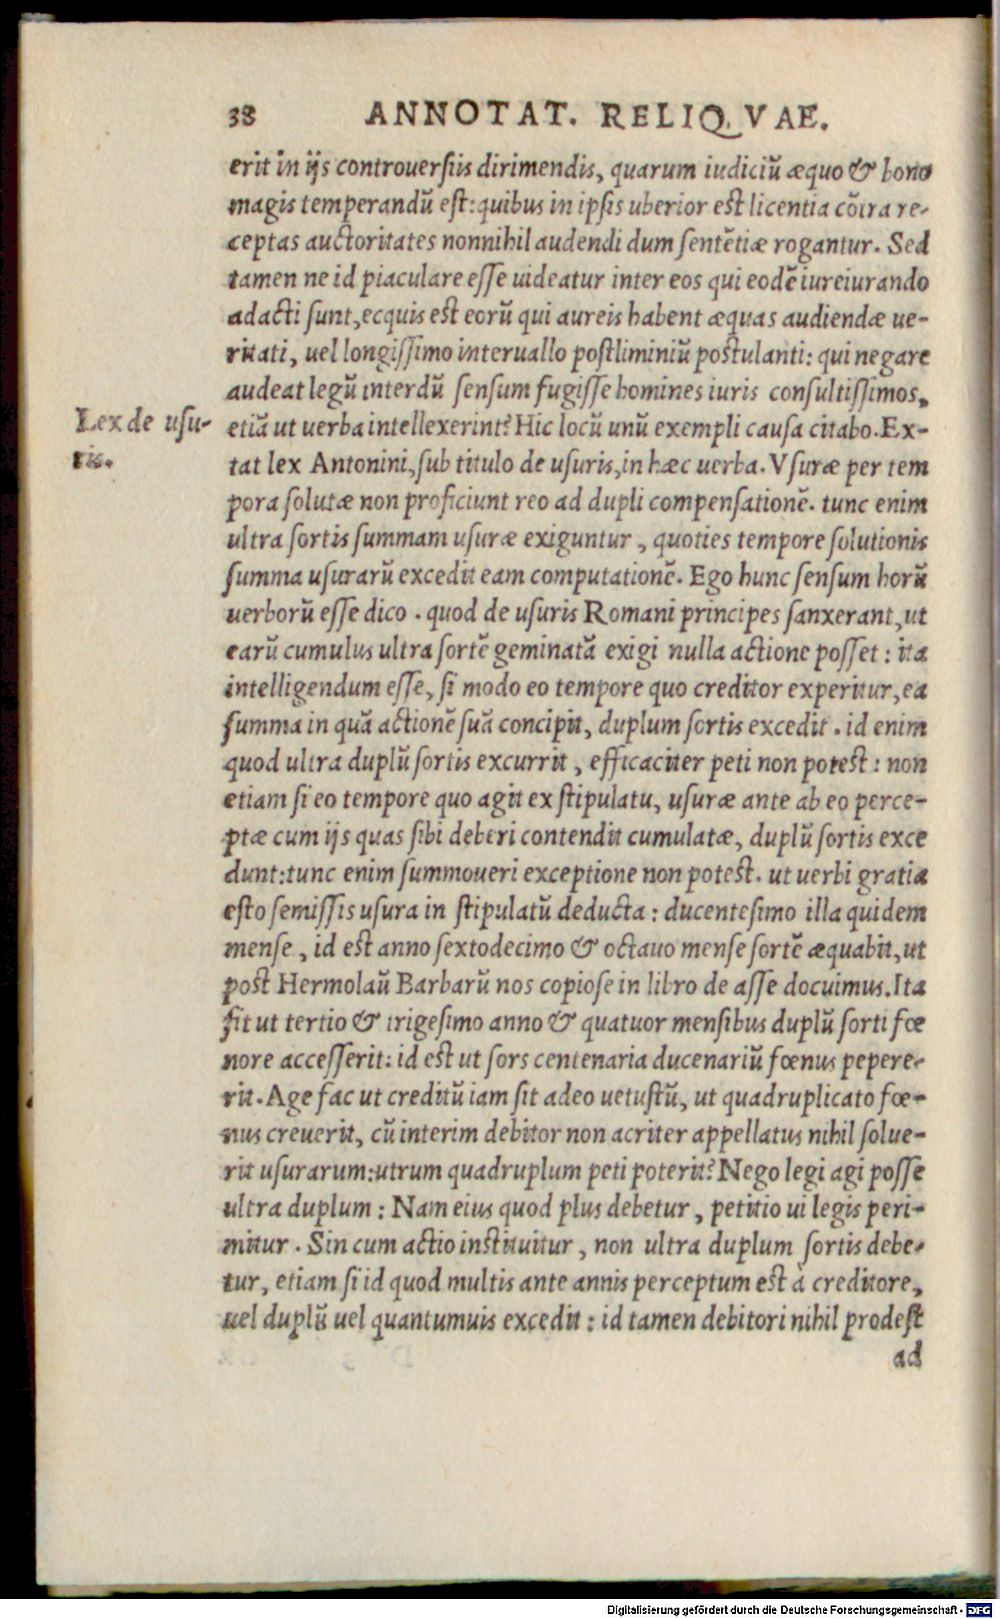 38 ANNOTAT. RELIQVAE.
erit in ijs controuersiis dirimendis, quarum iudiciũ æquo & bono
magis temperandũ est: quibus in ipsis uberior est licentia cõtra re-
ceptas auctoritates nonnihil audendi dum sentẽtiæ rogantur. Sed
tamen ne id piaculare esse uideatur inter eos qui eodẽ iureiurando
adacti sunt, ecquis est eorũ qui aureis habent æquas audiendæ ue-
ritati, uel longissimo interuallo postliminiũ postulanti: qui negare
audeat legũ interdũ sensum fugisse homines iuris consultissimos,
Lex de usu-
ris.
etiã ut uerba intellexerint? Hic locũ unũ exempli causa citabo. Ex-
tat lex Antonini, sub titulo de usuris, in hæc uerba. Vsuræ per tem
pora solutæ non proficiunt reo ad dupli compensationẽ. tunc enim
ultra sortis summam usuræ exiguntur, quoties tempore solutionis
summa usurarũ excedit eam computationẽ. Ego hunc sensum horũ
uerborũ esse dico. quod de usuris Romani principes sanxerant, ut
earũ cumulus ultra sortẽ geminatã exigi nulla actione posset: ita
intelligendum esse, si modo eo tempore quo creditor experitur, ea
summa in quã actionẽ suã concipit, duplum sortis excedit. id enim
quod ultra duplũ sortis excurrit, efficaciter peti non potest: non
etiam si eo tempore quo agit ex stipulatu, usuræ ante ab eo perce-
ptæ cum ijs quas sibi deberi contendit cumulatæ, duplũ sortis exce
dunt: tunc enim summoueri exceptione non potest. ut uerbi gratia
esto semissis usura in stipulatũ deducta: ducentesimo illa quidem
mense, id est anno sextodecimo & octauo mense sortẽ æquabit, ut
post Hermolaũ Barbarũ nos copiose in libro de asse docuimus. Ita
fit ut tertio & trigesimo anno & quatuor mensibus duplũ sorti fœ
nore accesserit: id est ut sors centenaria ducenariũ fœnus pepere-
rit. Age fac ut creditũ iam sit adeo uetustũ, ut quadruplicato fœ-
nus creuerit, cũ interim debitor non acriter appellatus nihil solue-
rit usurarum: utrum quadruplum peti poterit? Nego legi agi posse
ultra duplum: Nam eius quod plus debetur, petitio ui legis peri-
mitur. Sin cum actio instituitur, non ultra duplum sortis debe-
tur, etiam si id quod multis ante annis perceptum est à creditore,
uel duplũ uel quantumuis excedit: id tamen debitori nihil prodest
ad
Digitalisierung gefördert durch die Deutsche Forschungsgemeinschaft - DFG